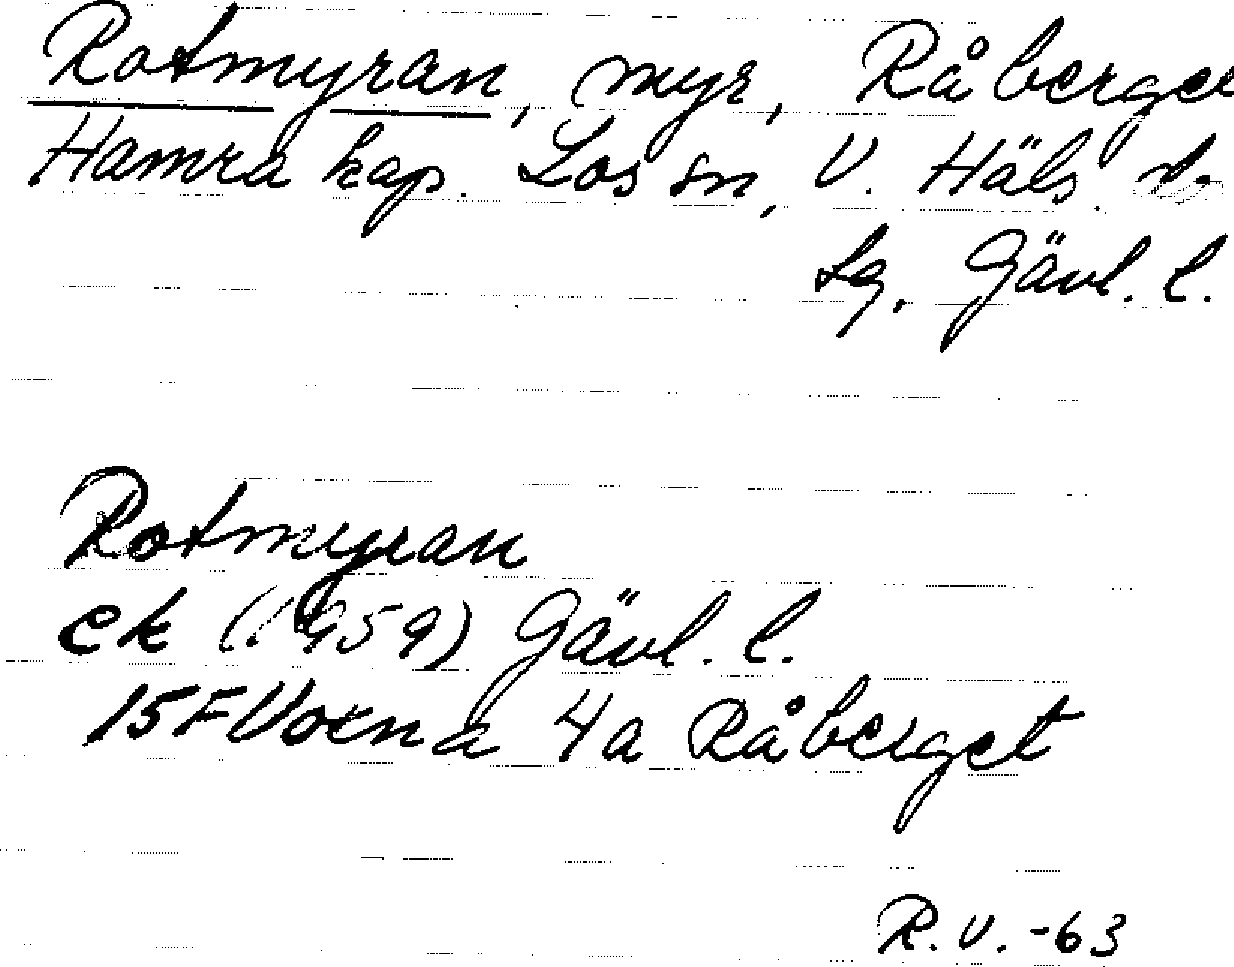 Rotmyran, myr, Råberget
Hamra kap. Los sn, V. Häls. d.
sg. Gävl. l.
Rotmyran
ek (1959) Gävl. l.
15F Voxna 4a Råberget
R.V.-63